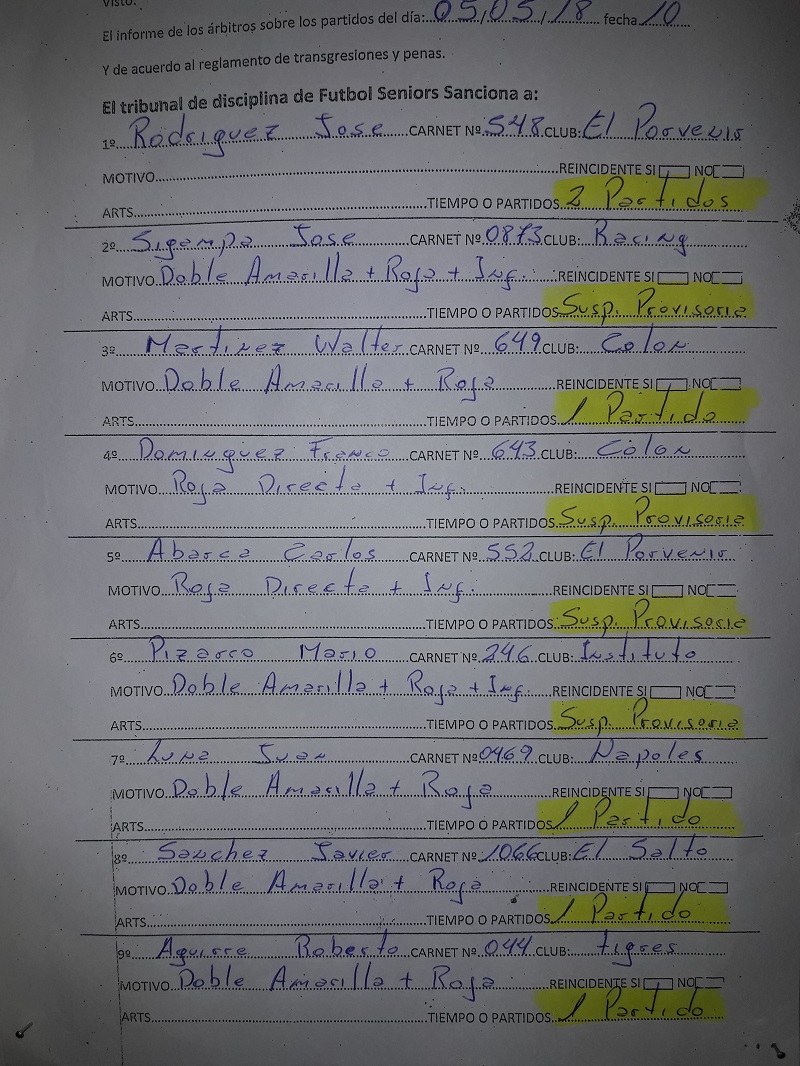 Visto:
El informe de los árbitros sobre los partidos del día: 05/05/18 fecha 10
Y de acuerdo al reglamento de transgresiones y penas.
El tribunal de disciplina de Futbol Seniors Sanciona a:
1º Rodriguez Jose CARNET Nº 548 CLUB: El Porvenir
MOTIVO REINCIDENTE SI NO
ARTS. TIEMPO O PARTIDOS 2 Partidos
2º Sigampa Jose CARNET Nº 0873 CLUB: Racing
MOTIVO Doble Amarilla + Roja + Inf. REINCIDENTE SI NO
ARTS. TIEMPO O PARTIDOS Susp. Provisoria
3º Martinez Walter CARNET Nº 649 CLUB: Colon
MOTIVO Doble Amarilla + Roja REINCIDENTE SI NO
ARTS. TIEMPO O PARTIDOS 1 Partido
4º Dominguez Franco CARNET Nº 643 CLUB: Colon
MOTIVO Roja Directa + Inf. REINCIDENTE SI NO
ARTS. TIEMPO O PARTIDOS Susp. Provisoria
5º Abarca Carlos CARNET Nº 552 CLUB: El Porvenir
MOTIVO Roja Directa + Inf. REINCIDENTE SI NO
ARTS. TIEMPO O PARTIDOS Susp. Provisoria
6º Pizarro Mario CARNET Nº 246 CLUB: Instituto
MOTIVO Doble Amarilla + Roja + Inf. REINCIDENTE SI NO
ARTS. TIEMPO O PARTIDOS Susp. Provisoria
7º Luna Juan CARNET Nº 0469 CLUB: Napoles
MOTIVO Doble Amarilla + Roja REINCIDENTE SI NO
ARTS. TIEMPO O PARTIDOS 1 Partido
8º Sanchez Javier CARNET Nº 1066 CLUB: El Salto
MOTIVO Doble Amarilla + Roja REINCIDENTE SI NO
ARTS. TIEMPO O PARTIDOS 1 Partido
9º Aguirre Roberto CARNET Nº 044 CLUB: tigres
MOTIVO Doble Amarilla + Roja REINCIDENTE SI NO
ARTS. TIEMPO O PARTIDOS 1 Partido